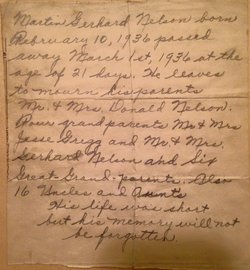 Martin Gerhard Nelson born
February 10, 1936 passed
away March 1st, 1936 at the
age of 21 days. He leaves
to mourn his parents
Mr. & Mrs. Donald Nelson.
Four grandparents Mr & Mrs
Jesse Gregg and Mr. & Mrs.
Gerhard Nelson and Six
Great Grand-parents. Also
16 Uncles and Aunts
His life was short
but his memory will not
be forgotten.